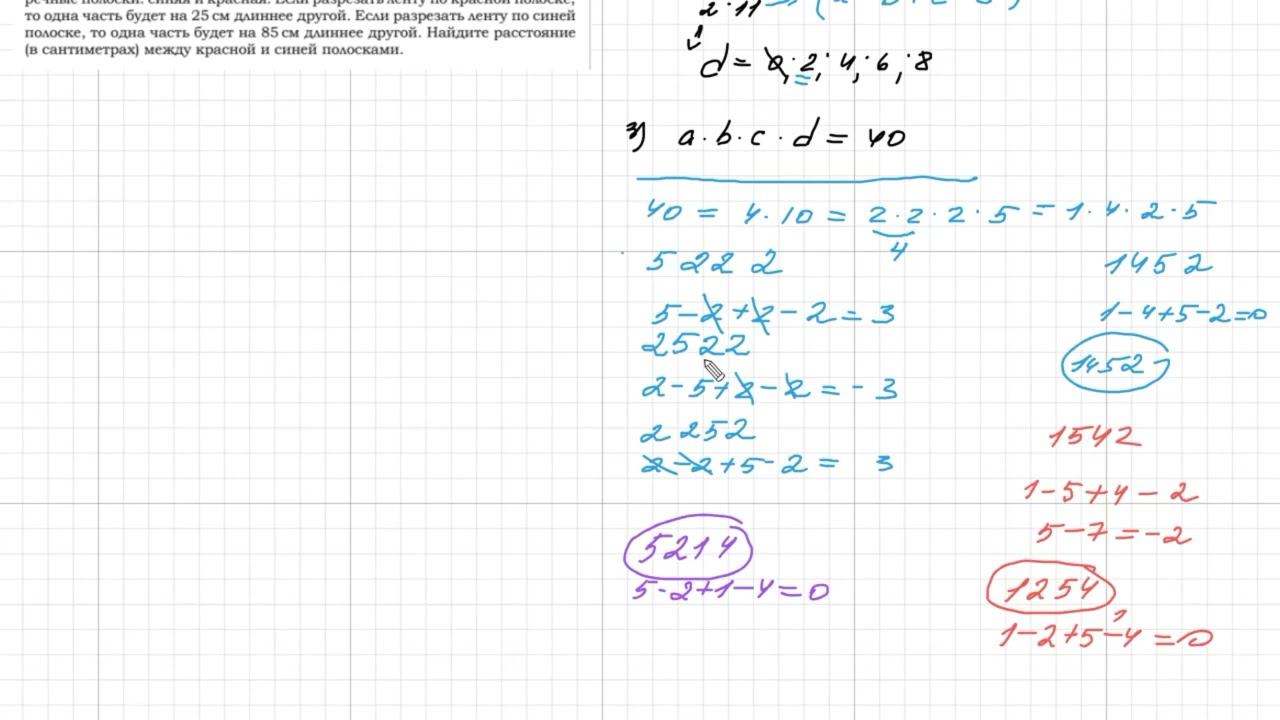 речные полоски: синяя и красная. Если разрезать ленту по красной полоске,
то одна часть будет на 25 см длиннее другой. Если разрезать ленту по синей
полоске, то одна часть будет на 85 см длиннее другой. Найдите расстояние
(в сантиметрах) между красной и синей полосками.
2·11
d = 0; 2; 4; 6; 8
3) a·b·c·d = 40
40 = 4·10 = 2·2·2·5 = 1·4·2·5
4
5222
5-2+2-2=3
2522
2-5+2-2=-3
2252
2-2+5-2= 3
5214
5-2+1-4=0
1452
1-4+5-2=0
1452
1542
1-5+4-2
5-7=-2
1254
1-2+5-4=0